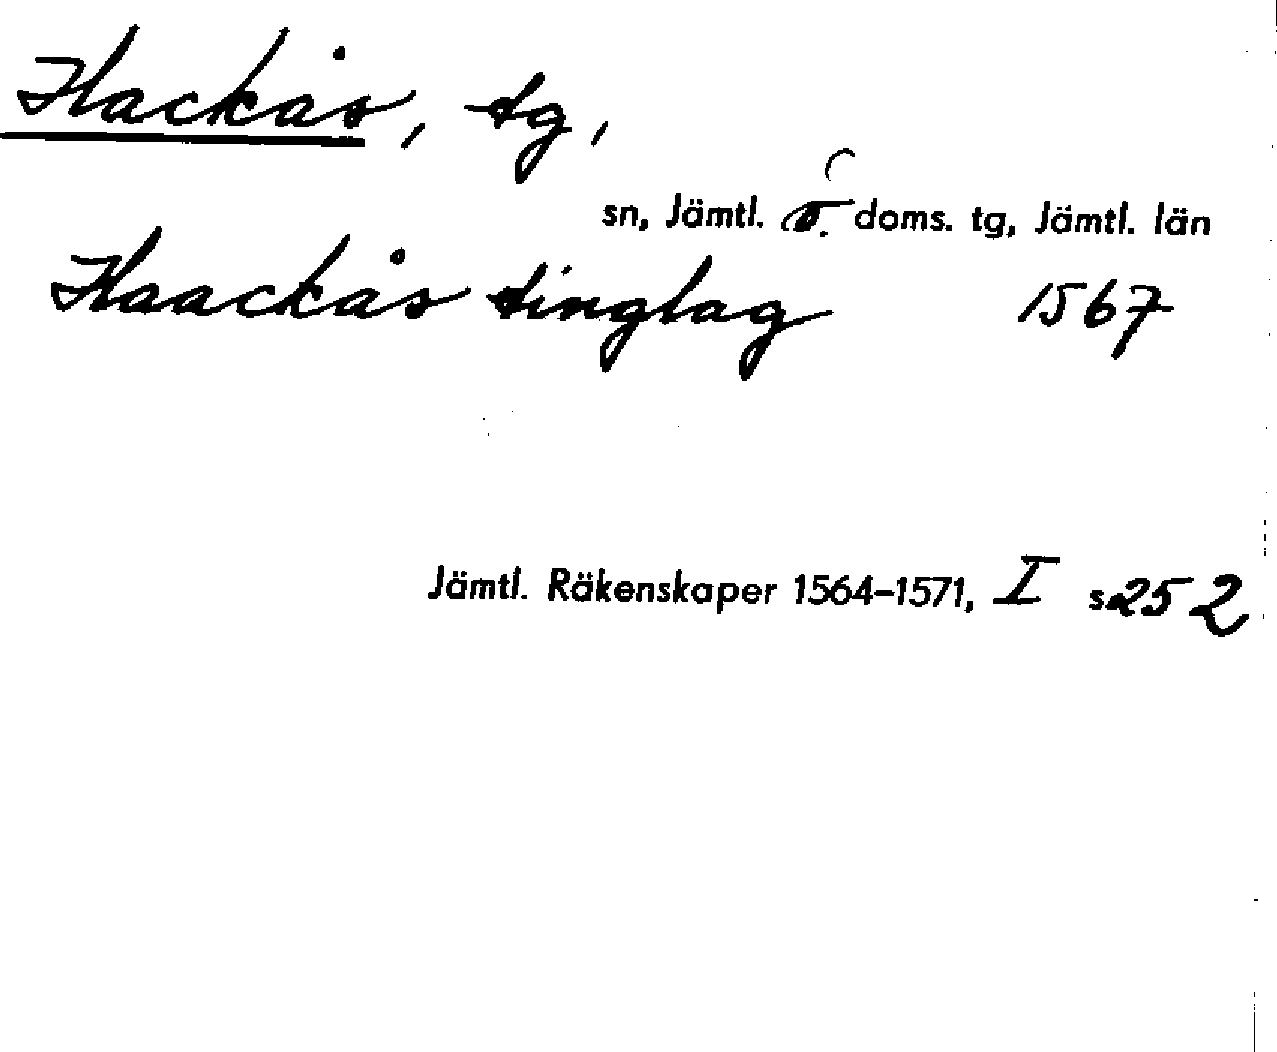 Hackås, tg,
sn, Jämtl. ö. doms. tg, Jämtl. län
Haackås tinglag 1567
Jämtl. Räkenskaper 1564–1571, I s. 252